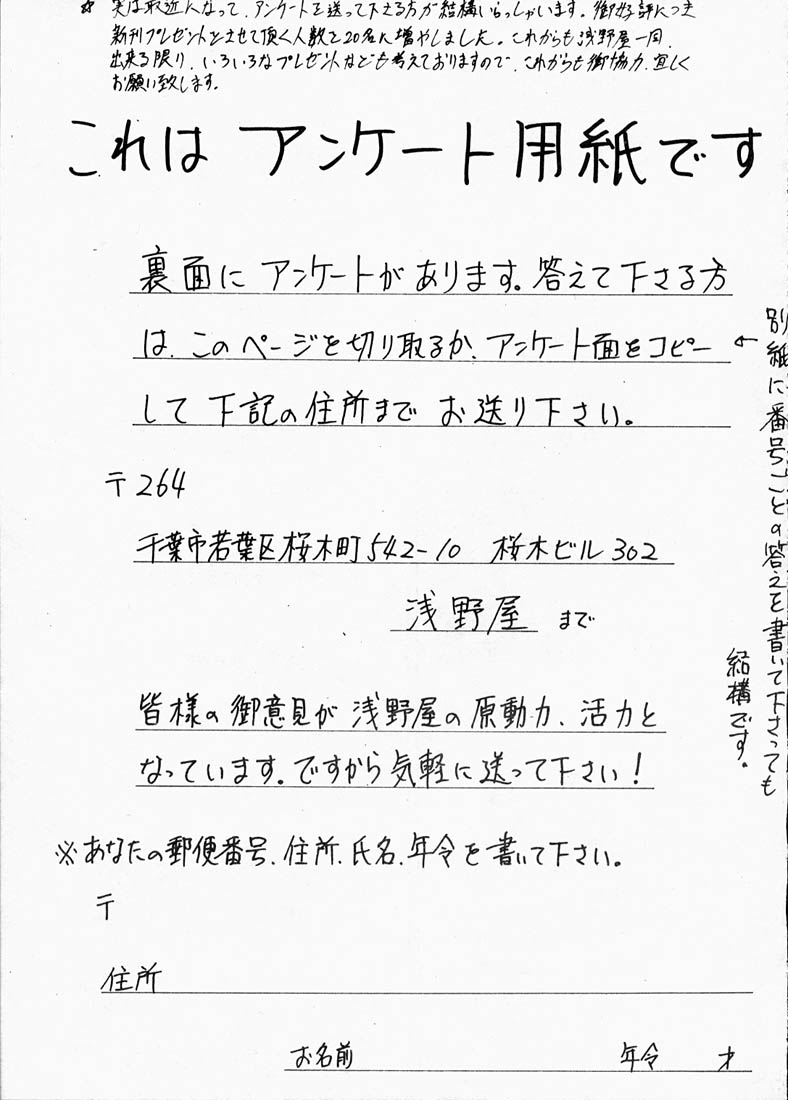 ☆ 実は最近になって、アンケートを送って下さる方が結構いらっしゃいます。御好評につき
新刊プレゼントをさせて頂く人数を20名に増やしました。これからも浅野屋一同、
出来る限り、いろいろなプレゼントなども考えておりますので、これからも御協力、宜しく
お願い致します。
これは アンケート用紙です
裏面に アンケートがあります。答えて下さる方
は、このページを切り取るか、アンケート面をコピー
して 下記の住所まで お送り下さい。
←別紙に番号ごとの答えを書いて下さっても
結構です。
〒264
千葉市若葉区桜木町542-10 桜木ビル302
浅野屋 まで
皆様の御意見が 浅野屋の原動力、活力と
なっています。ですから気軽に送って下さい！
※あなたの郵便番号、住所、氏名、年令を書いて下さい。
〒
住所
お名前 年令 才